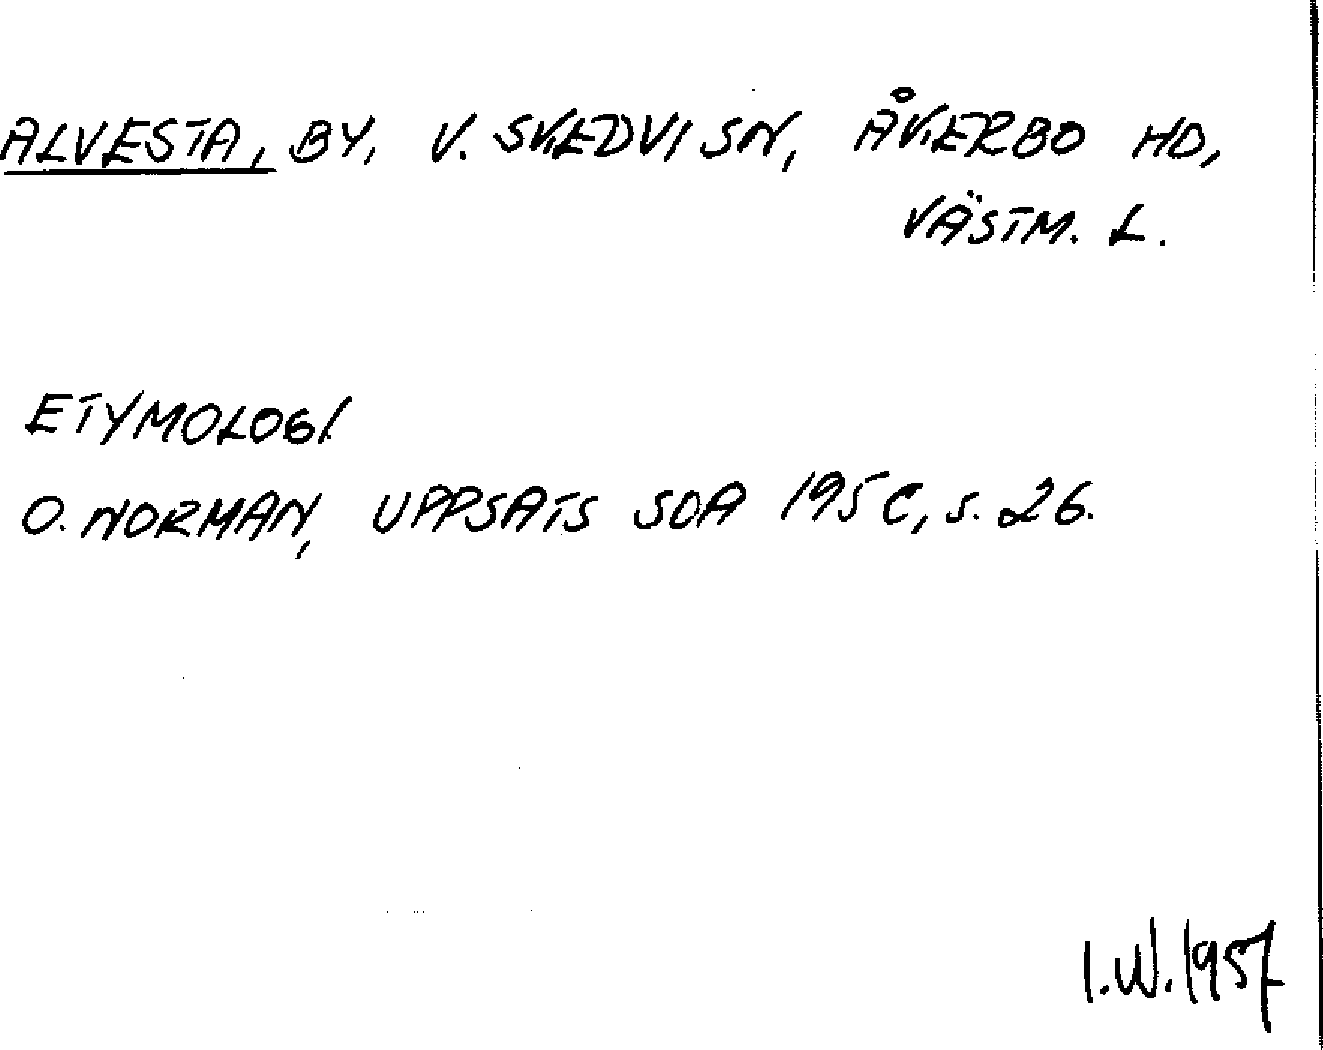 ALVESTA, BY, V. SKEDVI SN, ÅKERBO HD,
VÄSTM. L.
ETYMOLOGI.
O. NORMAN, UPPSATS SOA 195 C, S. 26.
I.W. 1957